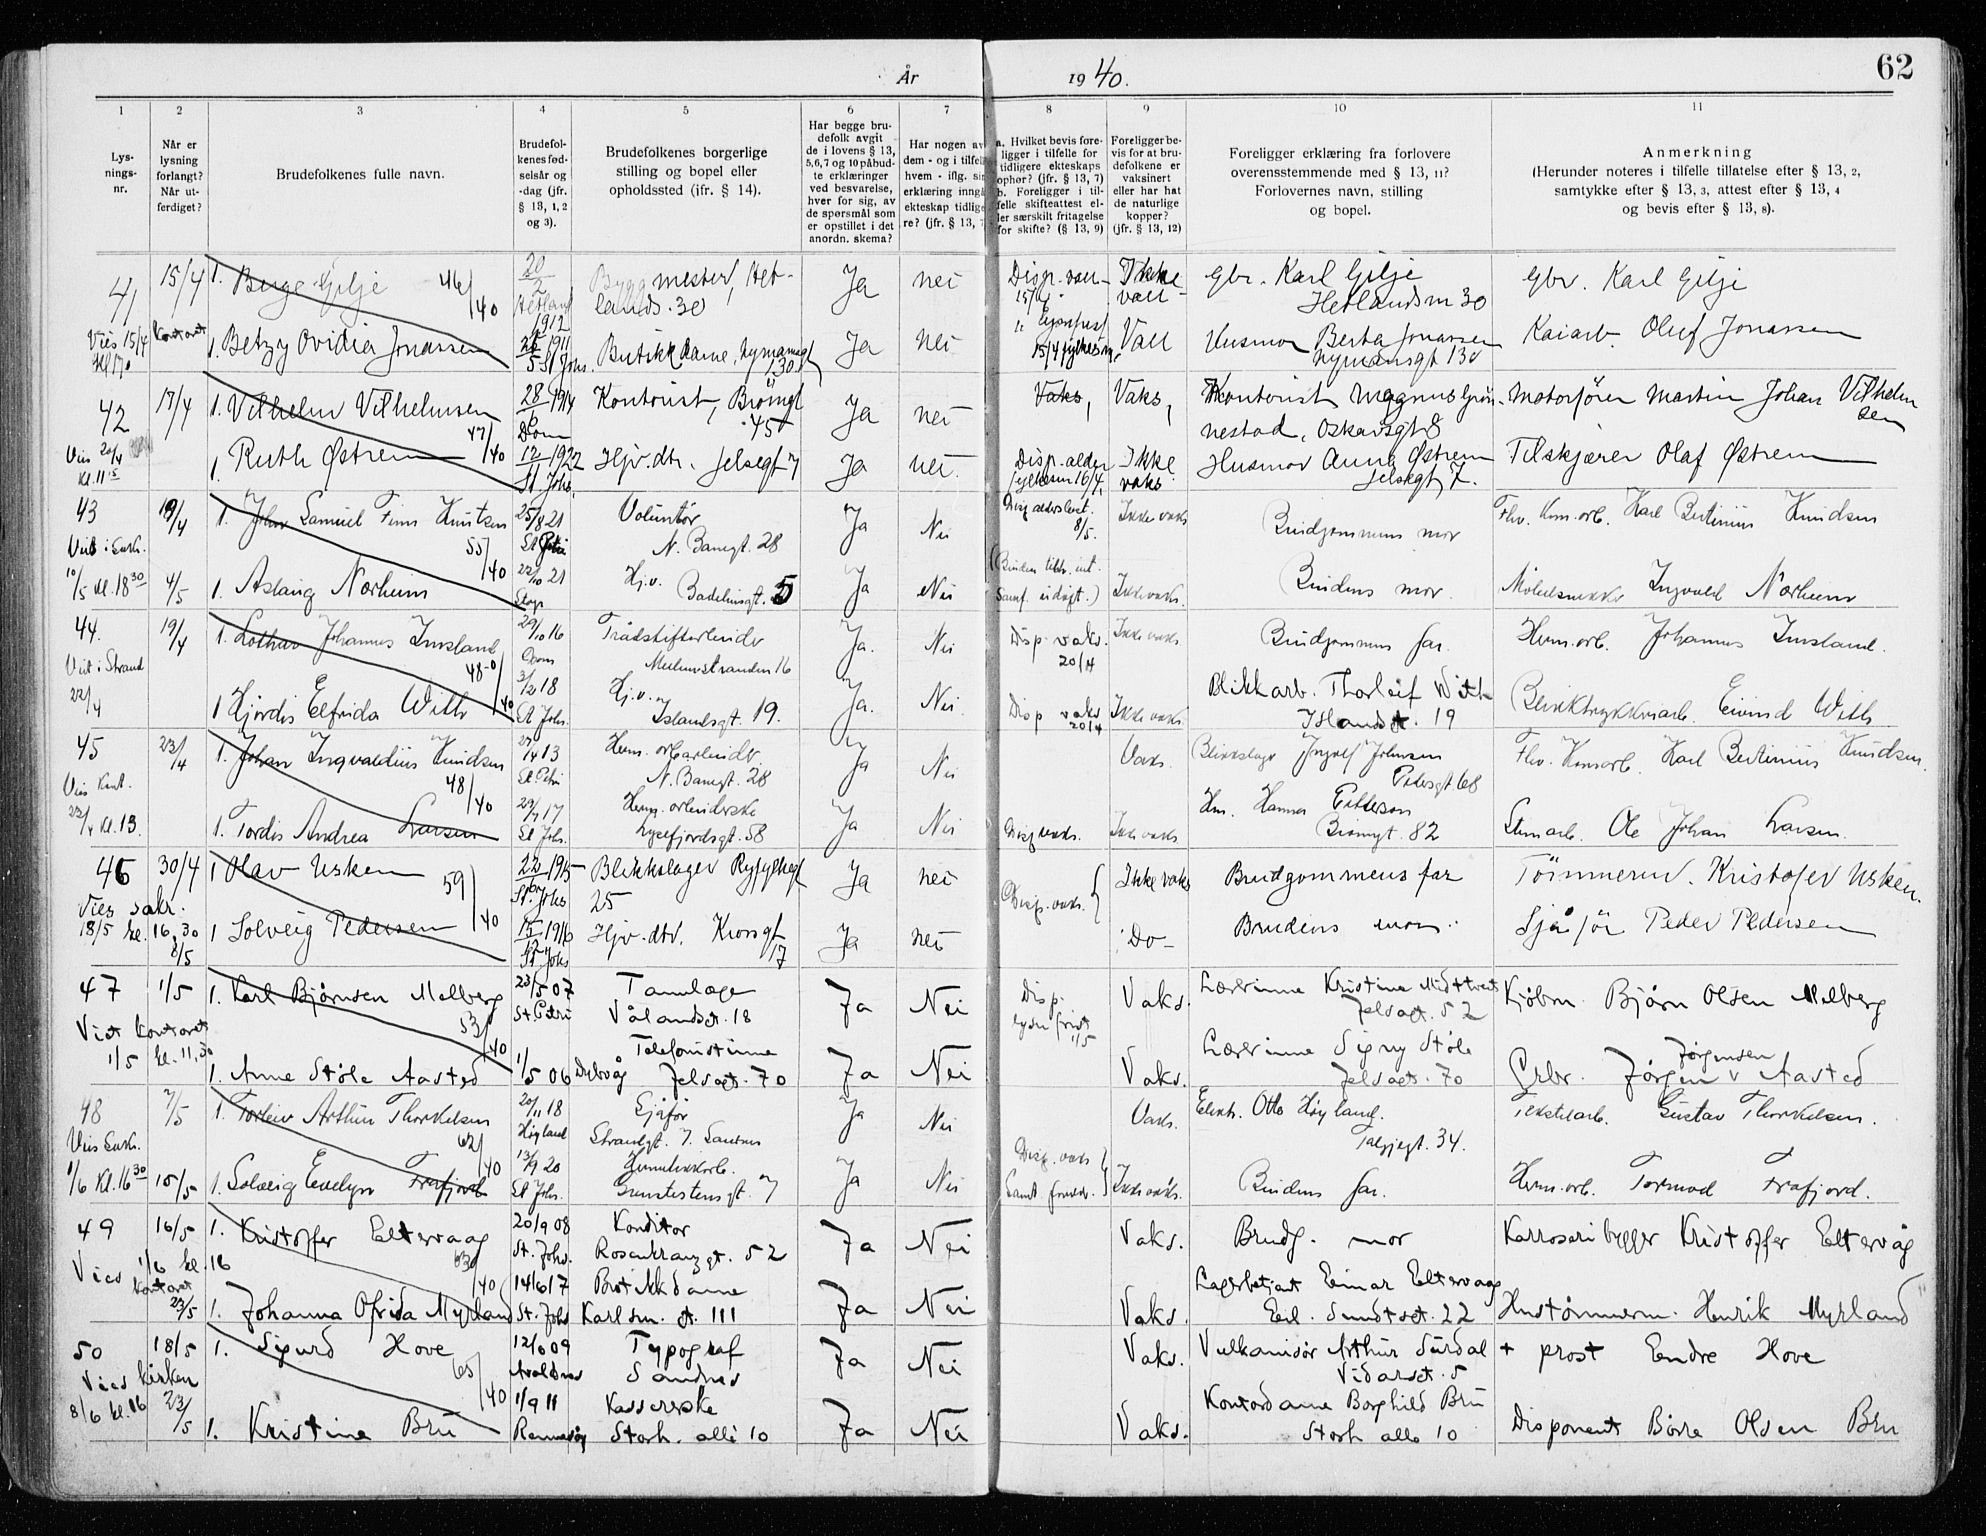 År 1940.
62
1 2 3 4 5 6 7 8 9 10 11
Lys-
nings-
nr.
Når er
lysning
forlangt?
Når ut-
ferdiget?
Brudefolkenes fulle navn.
Brudefol-
kenes fød-
selsår og
-dag (jfr.
§ 13, 1, 2
og 3).
Brudefolkenes borgerlige
stilling og bopel eller
opholdssted (ifr. § 14).
Har begge bru-
defolk avgit
de i lovens § 13,
5,6,7 og 10 påbud-
te erklæringer
ved besvarelse,
hver for sig, av
de spørsmål som
er opstillet i det
anordn. skema?
Har nogen av
dem - og i tilfel
hvem - iflg. sin
erklæring inngå
ekteskap tidlige
re? (jfr. § 13, 7
a. Hvilket bevis fore-
ligger i tilfelle for
tidligere ekteskaps
ophør? (jfr. § 13, 7)
b. Foreligger i til-
felle skifteattest el-
ler særskilt fritagelse
for skifte? (§ 13, 9)
Foreligger be-
vis for at bru-
defolkene er
vaksinert
eller har hat
de naturlige
kopper?
(jfr. § 13, 12)
Foreligger erklæring fra forlovere
overensstemmende med § 13, 11?
Forlovernes navn, stilling
og bopel.
Anmerkning
(Herunder noteres i tilfelle tillatelse efter § 13, 2,
samtykke efter § 13, 3, attest efter § 13, 4
og bevis efter § 13, 8).
41 15/4 1. Berge Gilje 46/40 20/2 Hetland 1912 Byggmester, Het-
lands. 30 Ja nei Disp. vaks 15/4 Ikke vaks Gbr. Karl Gilje
Hetlandsm 30 Gbr. Karl Gilje
Vies 15/4 Kontoret 1. Betzy Ovidia Jonassen 1911 St Johs. Butikkdame, Nymansgt 130 Ja nei 15/4 fylkesm. Vaks Husmor Berta Jonassen
Nymansgt 130 Kaiarb. Oluf Jonassen
42 17/4 1. Vilhelm Vilhelmsen 47/40 28/6 1914 Dom Kontorist, Brömgt
45 Ja nei Vaks, Vaks, Kontorist Magnus Grön-
nestad, Oskarsgt 8 Motorfører Martin Johan Vilhelm
sen
Vies 20/4 kl. 11 15 1. Ruth Østrem 12 1922 St Johs. Hjv. dtr. Jelsegt 7 Ja nei. Disp. alder
fylkesm 16/4, Ikke vaks Husmor Anna Østrem
Jelsegt 7. Tilskjærer Olaf Østrem
43 19/4 1. John Samuel Finn Knutsen 55/40 25/8 21 St Petri Voluntør
N. Banegt. 28 Ja Nei 8/5. Ikke vaks Brudgommens mor Flv. Herm. arb. Karl Bertinius Knudsen
10/5 kl. 18 30 4/5 1. Aslaug Norheim 22/10 21 Hj.v.
Badehusgt. 5 Ja Nei Ikke vaks. Brudens mor. Møbelsnekker Ingvald Norheim
44. 19/4 1. Lothar Johannes Imsland 48/40 29/10 16 Dom Trådstifterbeider
Mellemstranden 16 Ja. Nei Disp. vaks.
20/4 Ikke vaks Brudgommens far. Herm. arb. Johannes Imsland.
Viet i Strand
22/4 1 Hjørdis Elfrida With 3/2 18 St Johs. Hj.v.
Islandsgt. 19. Ja. Nei. Disp vaks
20/4 Ikke vaks Blikkarb. Thorleif With
Islandsgt. 19 Blikktrykkerarb. Eivind With
45 23/4 1. Johan Ingvaldius Knudsen 48/40 27/4 13 St Petri Herm. arbeider
N. Banegt. 28 Ja Nei Vaks. Blikkslager Ingolf Johnsen
Pedersgt 68 Flv. Herm. arb. Karl Bertinius Knudsen.
Vies Kont.
23/4 kl. 13. 1. Tordis Andrea Larsen 29/7 17 St Johs. Herm. arbeiderske
Lysefjordsgt. 58 Ja Nei Disp vaks. Ikke vaks. Hm. Hanna Pettersen
Brömgt. 82 Stenarb. Ole Johan Larsen.
46 30/4 1 Olav Usken 59/40 22/6 1915 St. Johs Blikkslager Ryfylkegt
25 Ja nei Disp. vaks. Ikke vaks Brudgommens far Tömmerm. Kristofer Usken.
Vies sakr.
18/5 kl. 16,30
8/5 1 Solveig Pedersen 15/12 1916 St Johs Hjv. dtr. Krossgt
17 Ja nei Do- Brudens mor. Sjåfør Peder Pedersen
47 1/5 1. Karl Bjørnsen Melberg 53/40 23/5 07 St. Petri Tannlæge
Vålandsgt. 18 Ja Nei Disp.
lysn frist
1/5 Vaks. Lærerinne Kristine Midttveit
Jelsagt. 52 Kjøbm. Bjørn Olsen Melberg
Viet Kontoret
1/5 kl. 11,30 1. Anne Støle Aasted 1/5 06 Telefonistinne
Jelsagt. 70 Ja Nei Vaks. Lærerinne Signy Støle
Jelsagt. 70 Grbr. Jørgen Jørgensen Aasted
48 7/5 1. Torleiv Arthur Thorkelsen 62/40 20/11 18 Høyland Sjåfør
Strandgt. 7. Sandnes Ja Nei Vaks. Elektr. Otto Høyland.
Talgjegt. 34. Tekstilarb. Gustav Thorkelsen.
1/6 kl. 16 30 15/5 1. Solveig Evelyn Frafjord 13/9 20 St Johs. Hermetikkarb.
Grønstensgt. 7 Ja Nei Disp. vaks Ikke vaks. Brudens far. Herm. arb. Tormod Frafjord.
49 16/5 1. Kristoffer Eltervaag 63/40 20/9 08 St. Johs. Konditor
Rosenkranzgt. 52 Ja Nei Vaks. Brudg. mor Karroseribygger Kristoffer Eltervåg
Vies 1/6 kl. 16
Kontoret
23/5 1. Johanna Ofrida Myrland 14/6 17 St. Johs Butikkdame
Karlsm. gt. 111 Ja Nei Vaks. Lagerbetjent Einar Eltervaag
Eil. Sundtsgt. 22 Hustømmerm. Henrik Myrland
50 18/5 1. Sigurd Hove 65/40 12/6 09 Avaldsnes Typograf
Sandnes Ja Nei Vaks. Vulkanisør Arthur Surdal
Vidarsgt. 5 + prost Endre Hove
Vies kirken
8/6 kl. 16 23/5 1. Kristine Bru 1/9 11 Rennesøy Kassererske
Storh. alle 10 Ja Nei Vaks. Kontordame Borghild Bru
Storh alle 10 Disponent Børre Olsen Bru